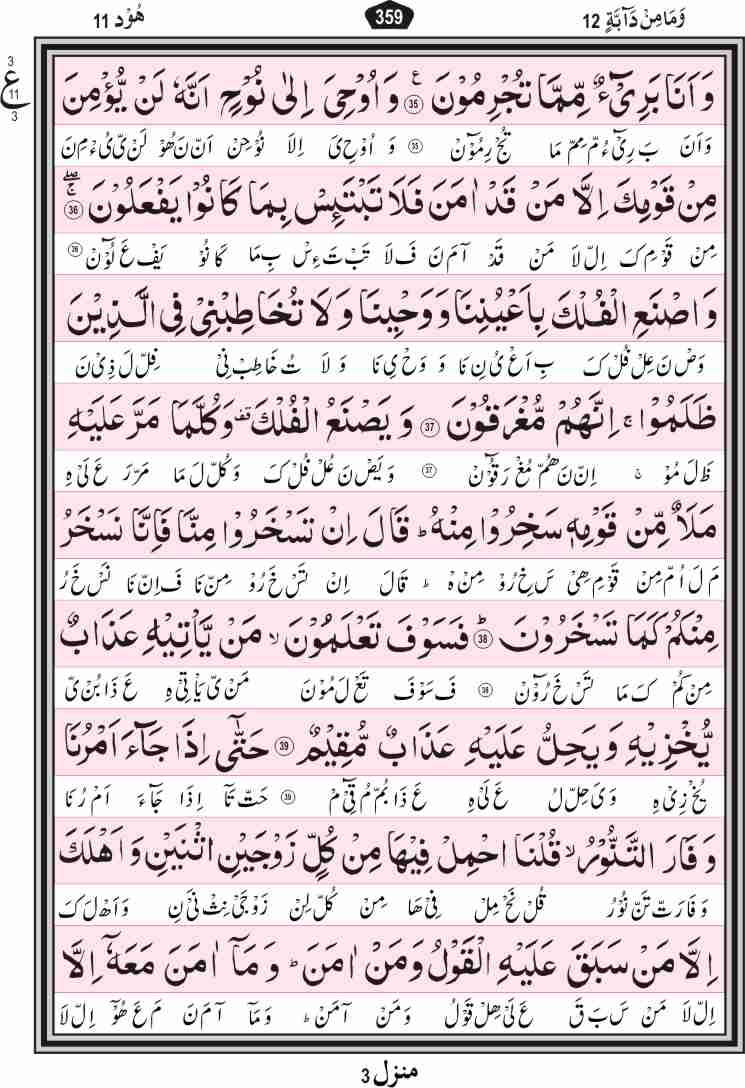 وَمَا مِنْ دَآبَّةٍ 12
359
هُوْد 11
3
ع
11
3
وَاَنَا بَرِیْٓءٌ مِّمَّا تُجْرِمُوْنَ ۧ 35 وَاُوْحِیَ اِلٰی نُوْحٍ اَنَّهٗ لَنْ یُّؤْمِنَ
وَاَنَ بَ رِیْٓ ءُ مّ مِمّ مَا تُجْ رِمُوْٓنْ 35 وَ اُوْحِ یَ اِلَا نُوْحِنْ اَنّ نَ هُوْ لَنْ یّ یُ ءْمِ نَ
مِنْ قَوْمِكَ اِلَّا مَنْ قَدْ اٰمَنَ فَلَا تَبْتَئِسْ بِمَا كَانُوْا یَفْعَلُوْنَ ۚۖ 36
مِنْ قَوْمِ كَ اِلّ لَا مَنْ قَدْ آمَ نَ فَ لَا تَبْ تَ ءِسْ بِ مَا كَا نُوْ یَفْ عَ لُوْٓنْ 36
وَاصْنَعِ الْفُلْكَ بِاَعْیُنِنَا وَوَحْیِنَا وَلَا تُخَاطِبْنِیْ فِی الَّذِیْنَ
وَصْ نَ عِلْ فُلْ كَ بِ اَعْ یُ نِ نَا وَ وَحْ یِ نَا وَ لَا تُ خَاطِبْ نِیْ فِلّ لَ ذِیْ نَ
ظَلَمُوْا ۚ اِنَّهُمْ مُّغْرَقُوْنَ 37 وَیَصْنَعُ الْفُلْكَ ۫ وَكُلَّمَا مَرَّ عَلَیْهِ
ظَ لَ مُوْ ۚ اِنّ نَ هُمّ مُغْ رَقُوْٓنْ 37 وَ یَصْ نَ عُلْ فُلْ كَ وَ كُلّ لَ مَا مَرّ رَ عَ لَیْ هِ
مَلَاٌ مِّنْ قَوْمِهٖ سَخِرُوْا مِنْهُ ؕ قَالَ اِنْ تَسْخَرُوْا مِنَّا فَاِنَّا نَسْخَرُ
مَ لَ اُمّ مِنْ قَوْمِ هِیْ سَ خِ رُوْ مِنْ هُ ؕ قَالَ اِنْ تَسْ خَ رُوْ مِنّ نَا فَ اِنّ نَا نَسْ خَ رُ
مِنْكُمْ كَمَا تَسْخَرُوْنَ ؕ 38 فَسَوْفَ تَعْلَمُوْنَ ۙ مَنْ یَّاْتِیْهِ عَذَابٌ
مِنْ كُمْ كَ مَا تَسْ خَ رُوْٓنْ 38 فَ سَوْفَ تَعْ لَ مُوْنَ مَنْ یّ یَاْ تِیْ هِ عَ ذَا بُنْ یّ
یُّخْزِیْهِ وَیَحِلُّ عَلَیْهِ عَذَابٌ مُّقِیْمٌ 39 حَتّٰۤی اِذَا جَآءَ اَمْرُنَا
یُخْ زِیْ هِ وَ یَ حِلّ لُ عَ لَیْ هِ عَ ذَا بُمّ مُ قِیْٓ مْ 39 حَتّ تَآ اِذَا جَآءَ اَمْ رُ نَا
وَفَارَ التَّنُّوْرُ ۙ قُلْنَا احْمِلْ فِیْهَا مِنْ كُلٍّ زَوْجَیْنِ اثْنَیْنِ وَاَهْلَكَ
وَ فَا رَتّ تَنّ نُوْرُ قُلْ نَحْ مِلْ فِیْ هَا مِنْ كُلّ لِنْ زَوْجَیْ نِثْ نَیْ نِ وَ اَهْ لَ كَ
اِلَّا مَنْ سَبَقَ عَلَیْهِ الْقَوْلُ وَمَنْ اٰمَنَ ؕ وَمَاۤ اٰمَنَ مَعَهٗۤ اِلَّا
اِلّ لَا مَنْ سَ بَ قَ عَ لَیْ هِلْ قَوْلُ وَ مَنْ آمَنْ ؕ وَ مَآ آمَ نَ مَ عَ هُوْٓ اِلّ لَا
منزل 3